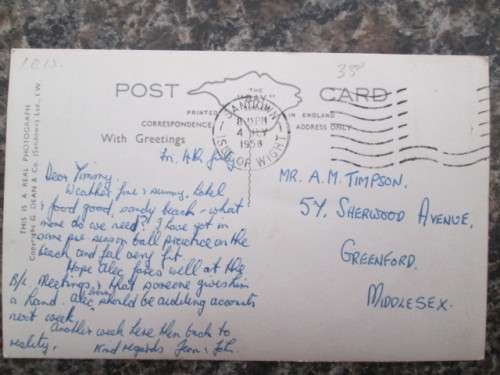 I.O.W.
35P
POST CARD
THE
"BAY"
PRINTED IN ENGLAND
CORRESPONDENCE ADDRESS ONLY
With Greetings
SANDOWN
PM
4 JLY
1958
ISLE OF WIGHT
THIS IS A REAL PHOTOGRAPH
Copyright G. DEAN & Co. (Sandown) Ltd., I.W.
Fri. 4th July
Dear Timmy,
Weather fine & sunny, hotel
& food good, sandy beach - what
more do we need? I have got in
some pre season ball practice on the
beach and feel very fit.
Hope Alec fares well at the
B/L meetings & that someone gives him
a hand. Alec &
should be auditing accounts
next week.
Another week here then back to
reality. Kind regards Jean & John.
MR. A. M. TIMPSON,
54, SHERWOOD AVENUE,
GREENFORD.
MIDDLESEX.